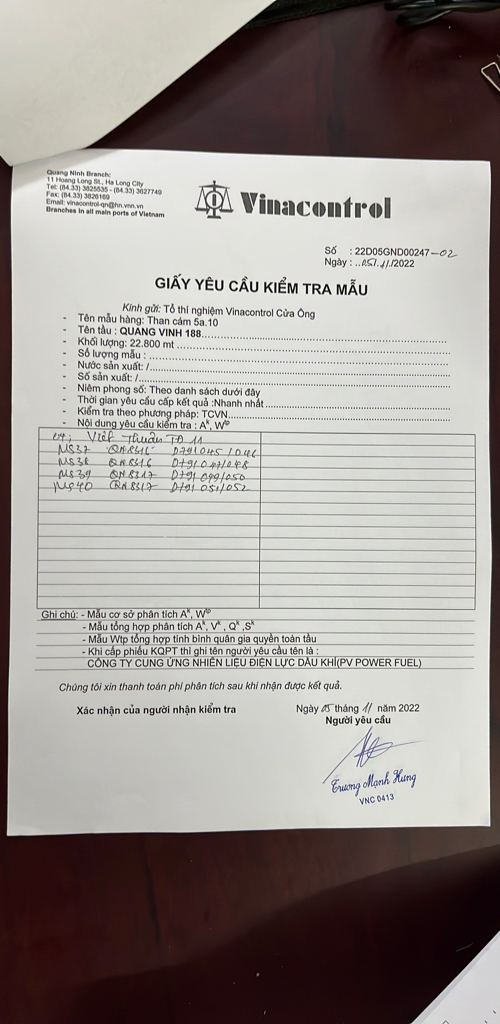 Quang Ninh Branch:
11 Hoang Long St., Ha Long City
Tel: (84.33) 3825535 - (84.33) 3627749
Fax: (84.33) 3826169
Email: vinacontrol-qn@hn.vnn.vn
Branches in all main ports of Vietnam
Vinacontrol
Số : 22D05GND00247-02
Ngày : ..05./.11/2022
GIẤY YÊU CẦU KIỂM TRA MẪU
Kính gửi: Tổ thí nghiệm Vinacontrol Cửa Ông
- Tên mẫu hàng: Than cám 5a.10
- Tên tàu : QUANG VINH 188
- Khối lượng: 22.800 mt
- Số lượng mẫu :
- Nước sản xuất: /
- Số sản xuất: /
- Niêm phong số: Theo danh sách dưới đây
- Thời gian yêu cầu cấp kết quả :Nhanh nhất
- Kiểm tra theo phương pháp: TCVN
- Nội dung yêu cầu kiểm tra : Aᵏ, Wˡᵖ
Việt Thuận TĐ 11
MS37 QN 8315 D791045/046
MS38 QN 8316 D791047/048
MS39 QN 8317 D791049/050
MS40 QN 8317 D791051/052
Ghi chú: - Mẫu cơ sở phân tích Aᵏ, Wˡᵖ
- Mẫu tổng hợp phân tích Aᵏ, Vᵏ , Qᵏ ,Sᵏ
- Mẫu Wtp tổng hợp tính bình quân gia quyền toàn tàu
- Khi cấp phiếu KQPT thì ghi tên người yêu cầu tên là :
CÔNG TY CUNG ỨNG NHIÊN LIỆU ĐIỆN LỰC DẦU KHÍ(PV POWER FUEL)
Chúng tôi xin thanh toán phí phân tích sau khi nhận được kết quả.
Xác nhận của người nhận kiểm tra
Ngày 05 tháng 11 năm 2022
Người yêu cầu
Trương Mạnh Hưng
VNC 0413